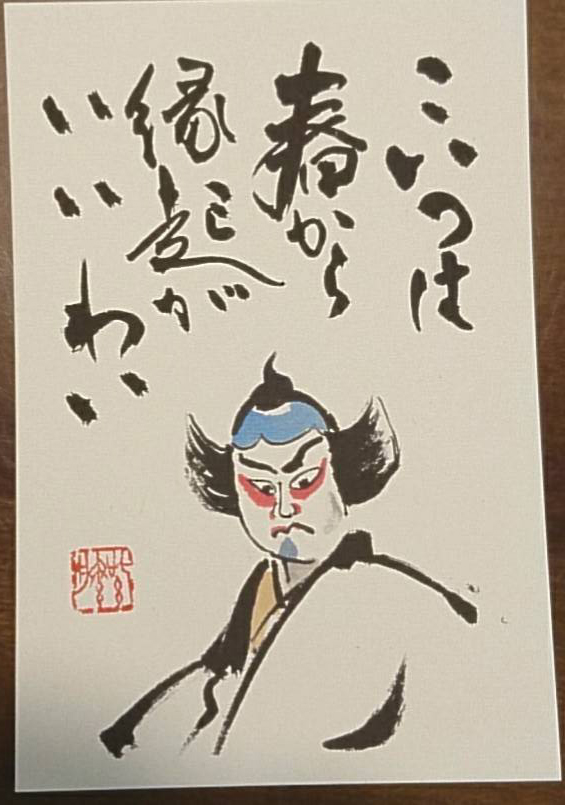 こいつは
春から
縁起が
いいわい